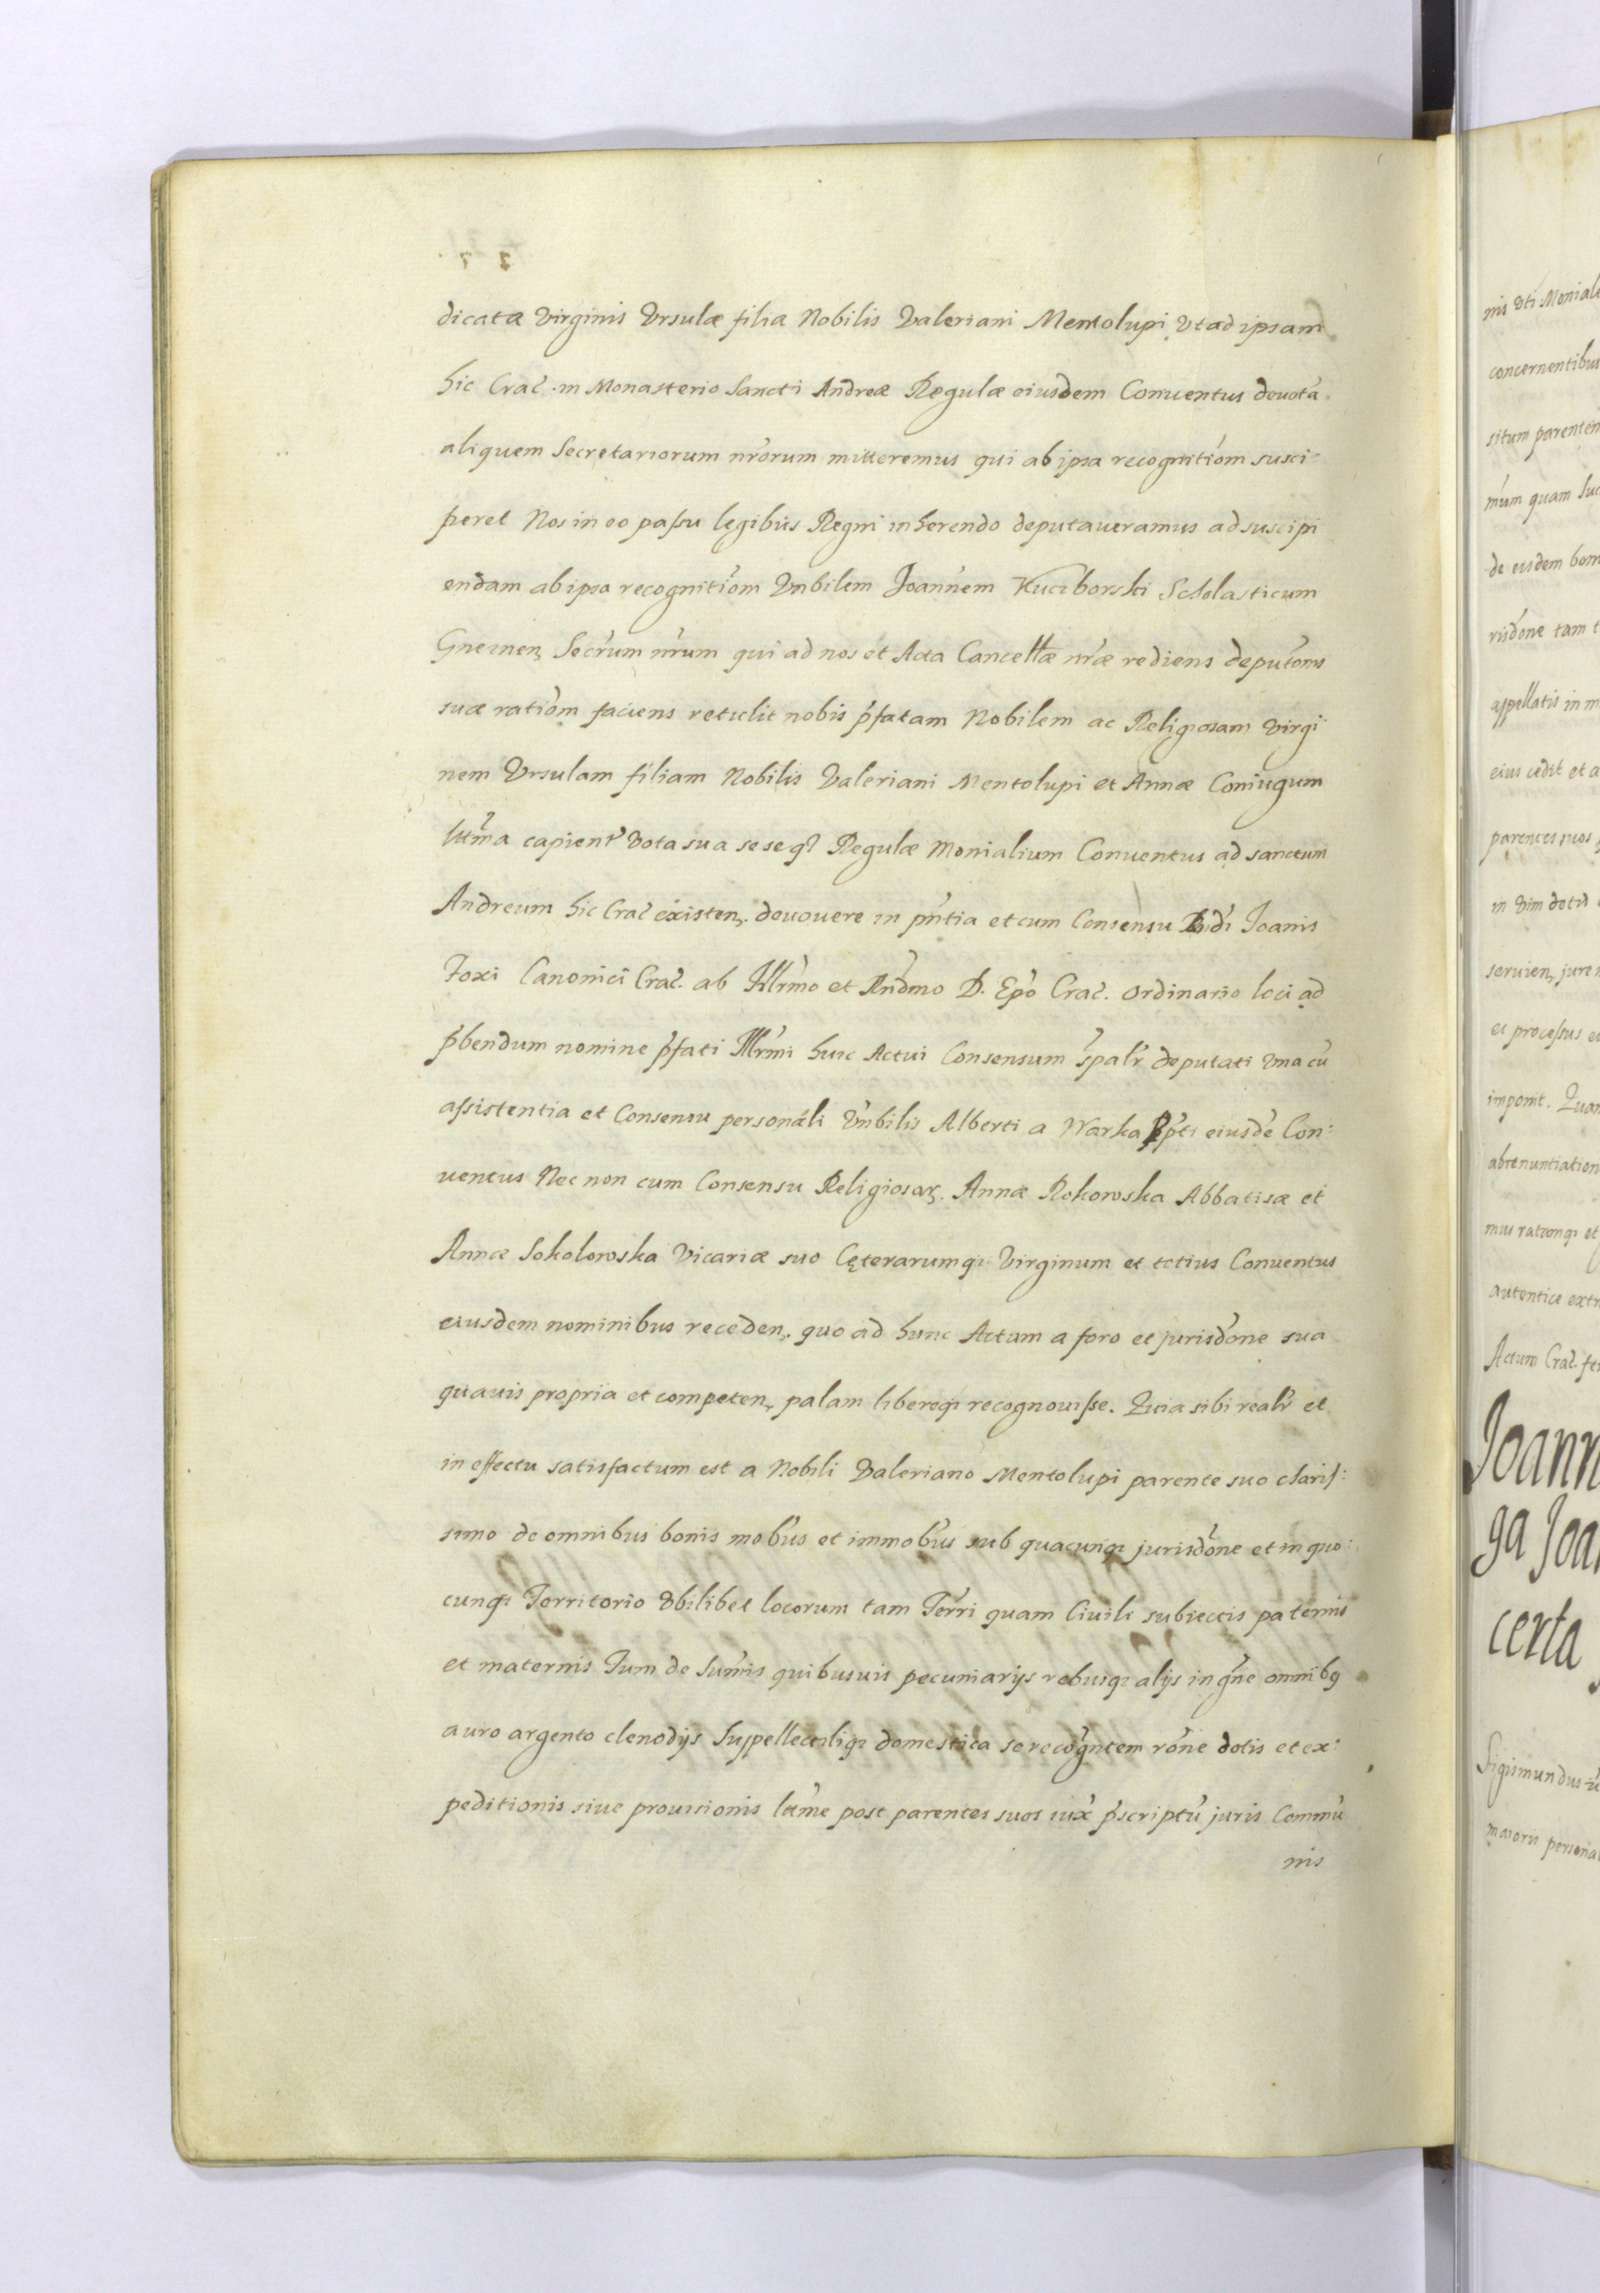 dicatæ Virginis Vrsulæ filia Nobilis Valeriani Mentolupi Vt ad ipsam
hic Crac̄. in Monasterio Sancti Andreæ Regulæ eiusdem Conuentus deuotã
aliquem Secretariorum nr̃orum mitteremus qui ab ipsa recognitio͂m susci-
peret Nos in eo passu legibus Regni inherendo deputaueramus ad suscipi
endam ab ipsa recognitio͂m Vnbilem Joannem Kuciborski Scholasticum
Gnesnen̨ Secr̃um nr̃um qui ad nos et Acta Cancellæ nr̃æ rediens deputõnis
suæ ratio͂m faciens retulit nobis p̃fatam Nobilem ac Religiosam Virgi
nem Vrsulam filiam Nobilis Valeriani Mentolupi et Annæ Coniugum
ltm̃a capient̃ Vota sua sese q̃ Regulæ Monialium Conuentus ad sanctum
Andreum hic Crac̄ existen̨. deuouere in pñtia et cum Consensu Rñdi Joanis
Foxi Canonici Crac̄. ab Illr̃mo et Rñdmo D. Epõ Crac̄. Ordinario loci ad
p̃bendum nomine p̃fati Illr̃mi huic Actui Consensum sp̃alr̃ deputati Vna cũ
assistentia et Consensu personali Vñbilis Alberti a Warka Pp̃ti eiusdẽ Con:
uentus Nec non cum Consensu Religiosaꝝ. Annæ Rokowska Abbatisæ et
Annæ Sokolowska Vicariæ suo Cęterarumq̃ Virginum et totius Conuentus
eiusdem nominibus receden̨. quo ad hunc Actum a foro et jurisdõne sua
quauis propria et competen̨, palam libereq̃ recognouisse. Quia sibi realr̃ et
in effectu satisfactum est a Nobili Valeriano Mentolupi parente suo charis:
simo de omnibus bonis mob̃us et immob̃us sub quacunq̃ jurisdõne et in quo:
cunq̃ Territorio Vbilibet locorum tam Terr̃i quam Ciuili subiectis paternis
et maternis Tum de Sum̃is quibusuis pecuniarijs rebusq̃ alijs in gñe omnibꝰ
auro argento clenodijs Suppellectiliq̃ domestica se recog̃ntem rõne dotis et ex:
peditionis siue prouisionis ltm̃e post parentes suos iux̃ p̃scriptũ juris Commũ
nis
mis Vti Moniale
concernentibus
situm parentem
mũm quam Suc
de eisdem bon
risdone tam t
appellatis in m
eius cedit et a
parentes suos
in Vim dotis
seruien̨ jure
et processus e
imponit. Quam
abrenuntiation
mus ratumq̃ et
autentice extr
Actum Crac̄. fe
Joann
ga Joa
certa
Sigismundus
maioris persona